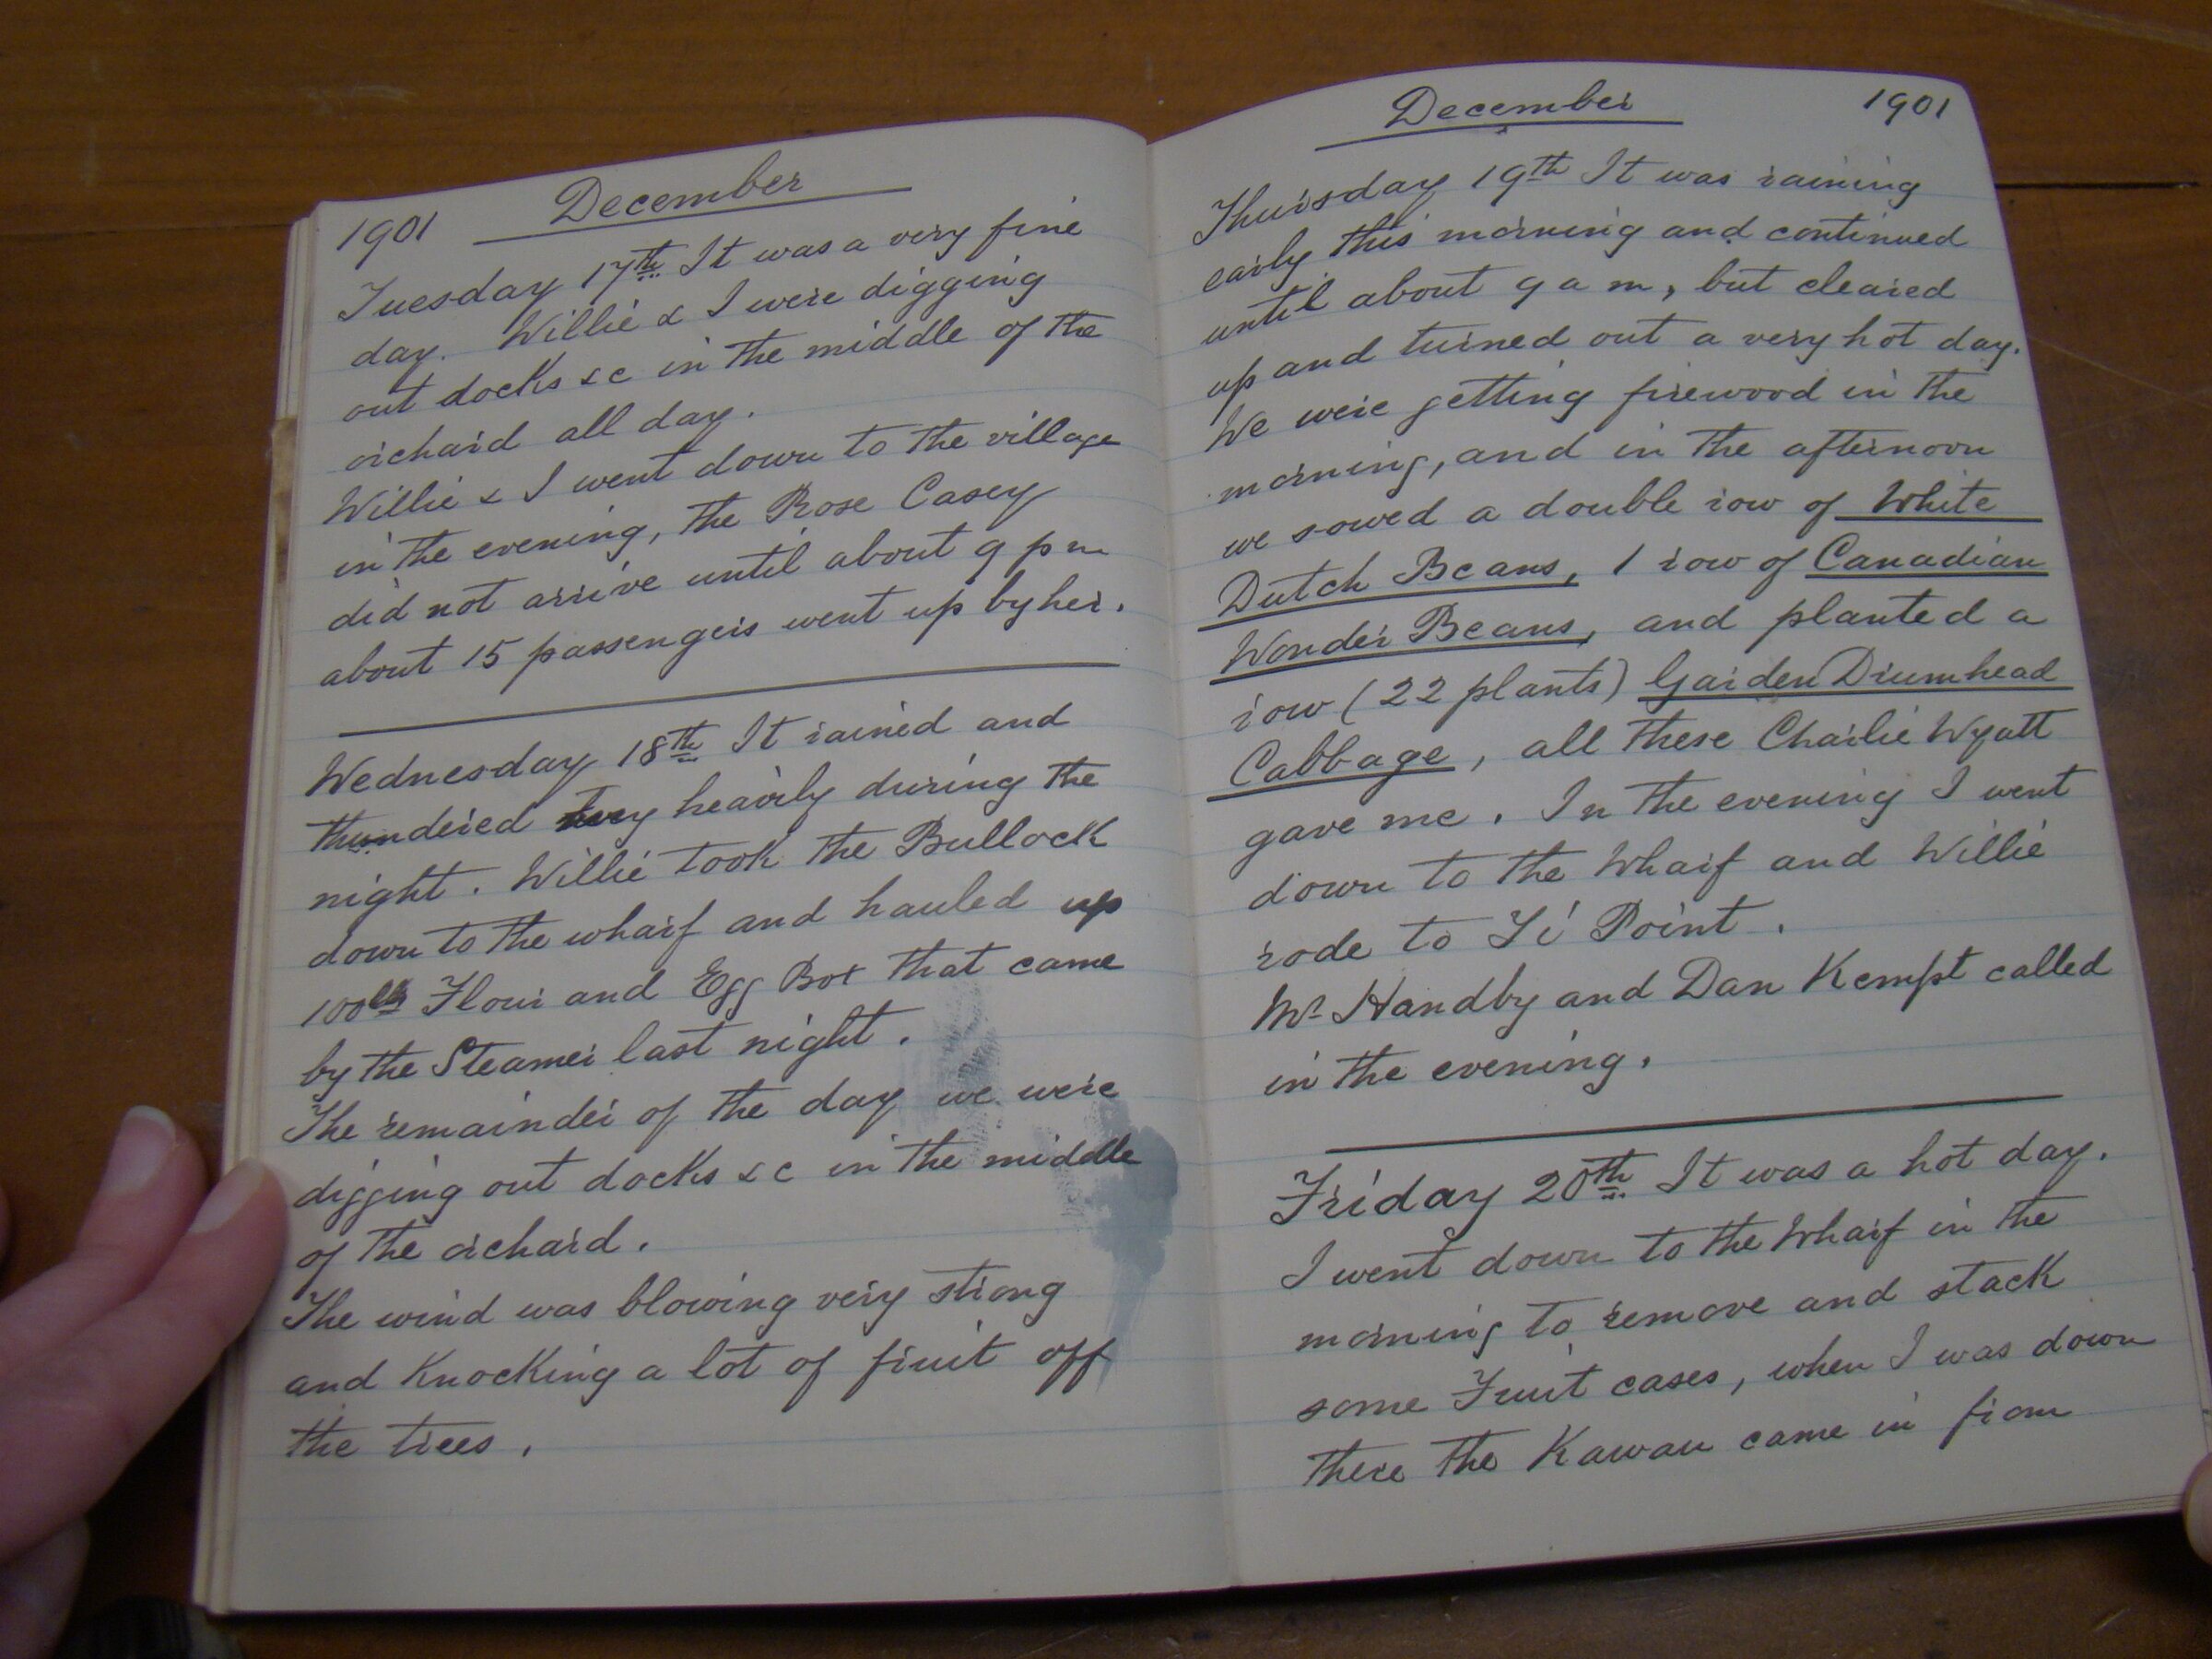 1901 December
Tuesday 17th It was a very fine
day. Willie & I were digging
out docks &c in the middle of the
orchard all day.
Willie & I went down to the village
in the evening, the Rose Casey
did not arrive until about 9 p m
about 15 passengers went up by her.
Wednesday 18th It rained and
thundered very heavily during the
night. Willie took the Bullock
down to the wharf and hauled up
100lb Flour and Egg Box that came
by the Steamer last night.
The remainder of the day we were
digging out docks &c in the middle
of the orchard.
The wind was blowing very strong
and Knocking a lot of fruit off
the trees.
December 1901
Thursday 19th It was raining
early this morning and continued
until about 9 a m, but cleared
up and turned out a very hot day.
We were getting firewood in the
morning, and in the afternoon
we sowed a double row of White
Dutch Beans, 1 row of Canadian
Wonder Beans, and planted a
row (22 plants) Garden Drumhead
Cabbage, all these Charlie Wyatt
gave me. In the evening I went
down to the Wharf and Willie
rode to Ti Point.
Mr Handby and Dan Kempt called
in the evening.
Friday 20th It was a hot day.
I went down to the Wharf in the
morning to remove and stack
some Fruit cases, when I was down
there the Kawau came in from